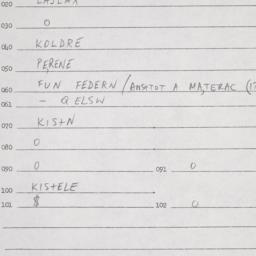 020
030 0
040 KOLDRE
050 PEṚENE
060 FUN FEDERN / ANSTOT A MAṬERAC (1?
061 - Q ELSW
070 KIStN
080 0
090 0 091 0
100 KIStELE
101 $ 102 0